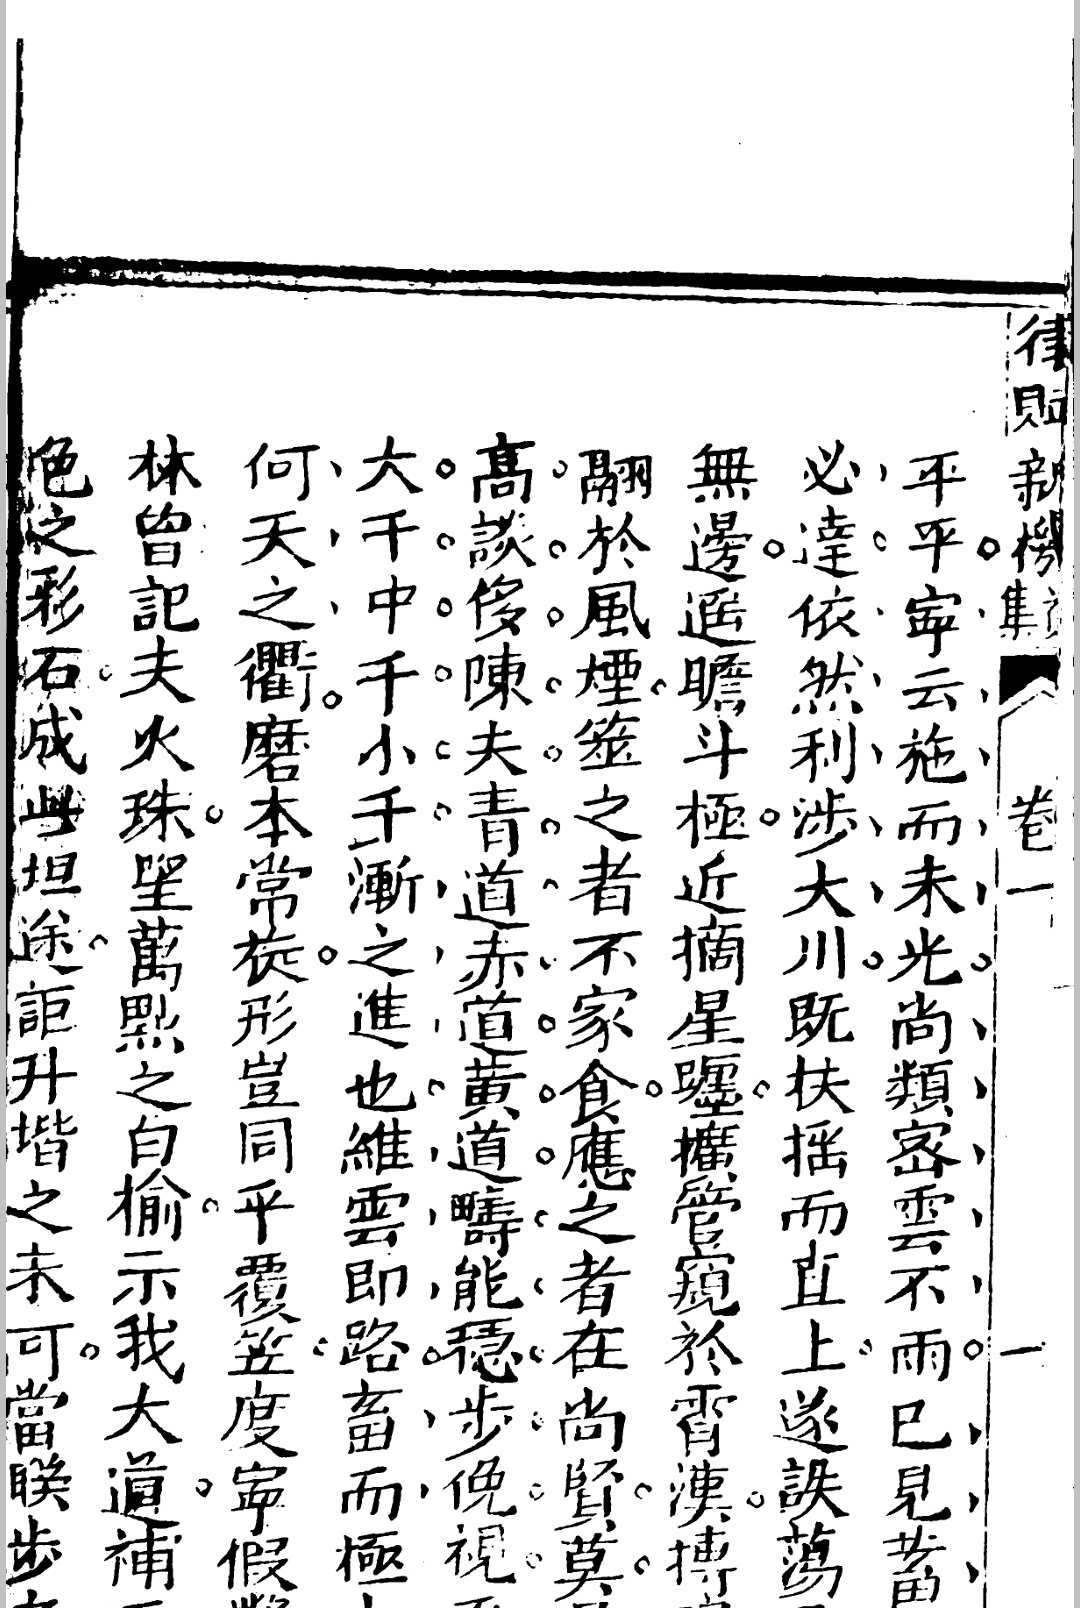 律賦新機
集
卷一
一
平平寧云施而未光尚類密雲不雨已見畜
必達依然利涉大川既扶搖而直上遂訣蕩
無邊遥瞻斗極近摘星躔擴管窺於霄漢摶
翮於風煙筮之者不家食應之者在尚賢莫
高談侈陳夫青道赤道黄道疇能穩步俛視
大千中千小千漸之進也維雲即路畜而極
何天之衢磨本常旋形豈同乎覆笠度寧假
林曾記夫火珠望萬㸃之白榆示我大道補
色之彩石成此坦途詎升堦之未可當聯步